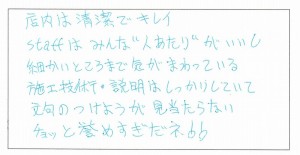 店内は清潔でキレイ
staffはみんな"人あたり"がいいし
細かいところまで気がまわっている
施工技術・説明はしっかりしていて
文句のつけようが見当たらない
チョッと誉めすぎだネ